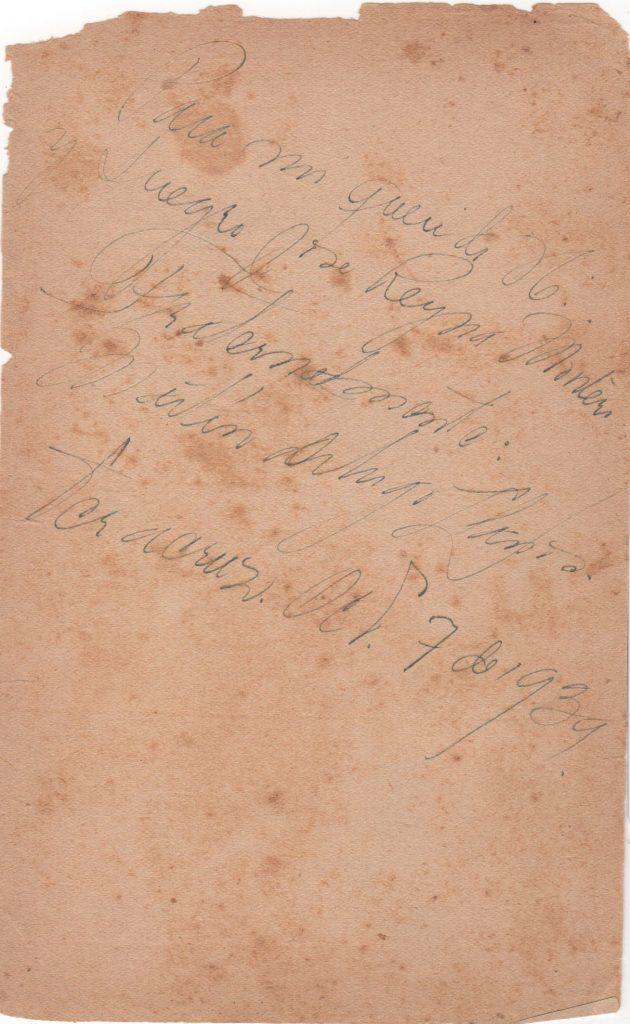 Para mi querido H.
y Suegro Jose Reyna Montero
Fraternalmente:
Martin
Veracruz. Oct. 7 de 1939.